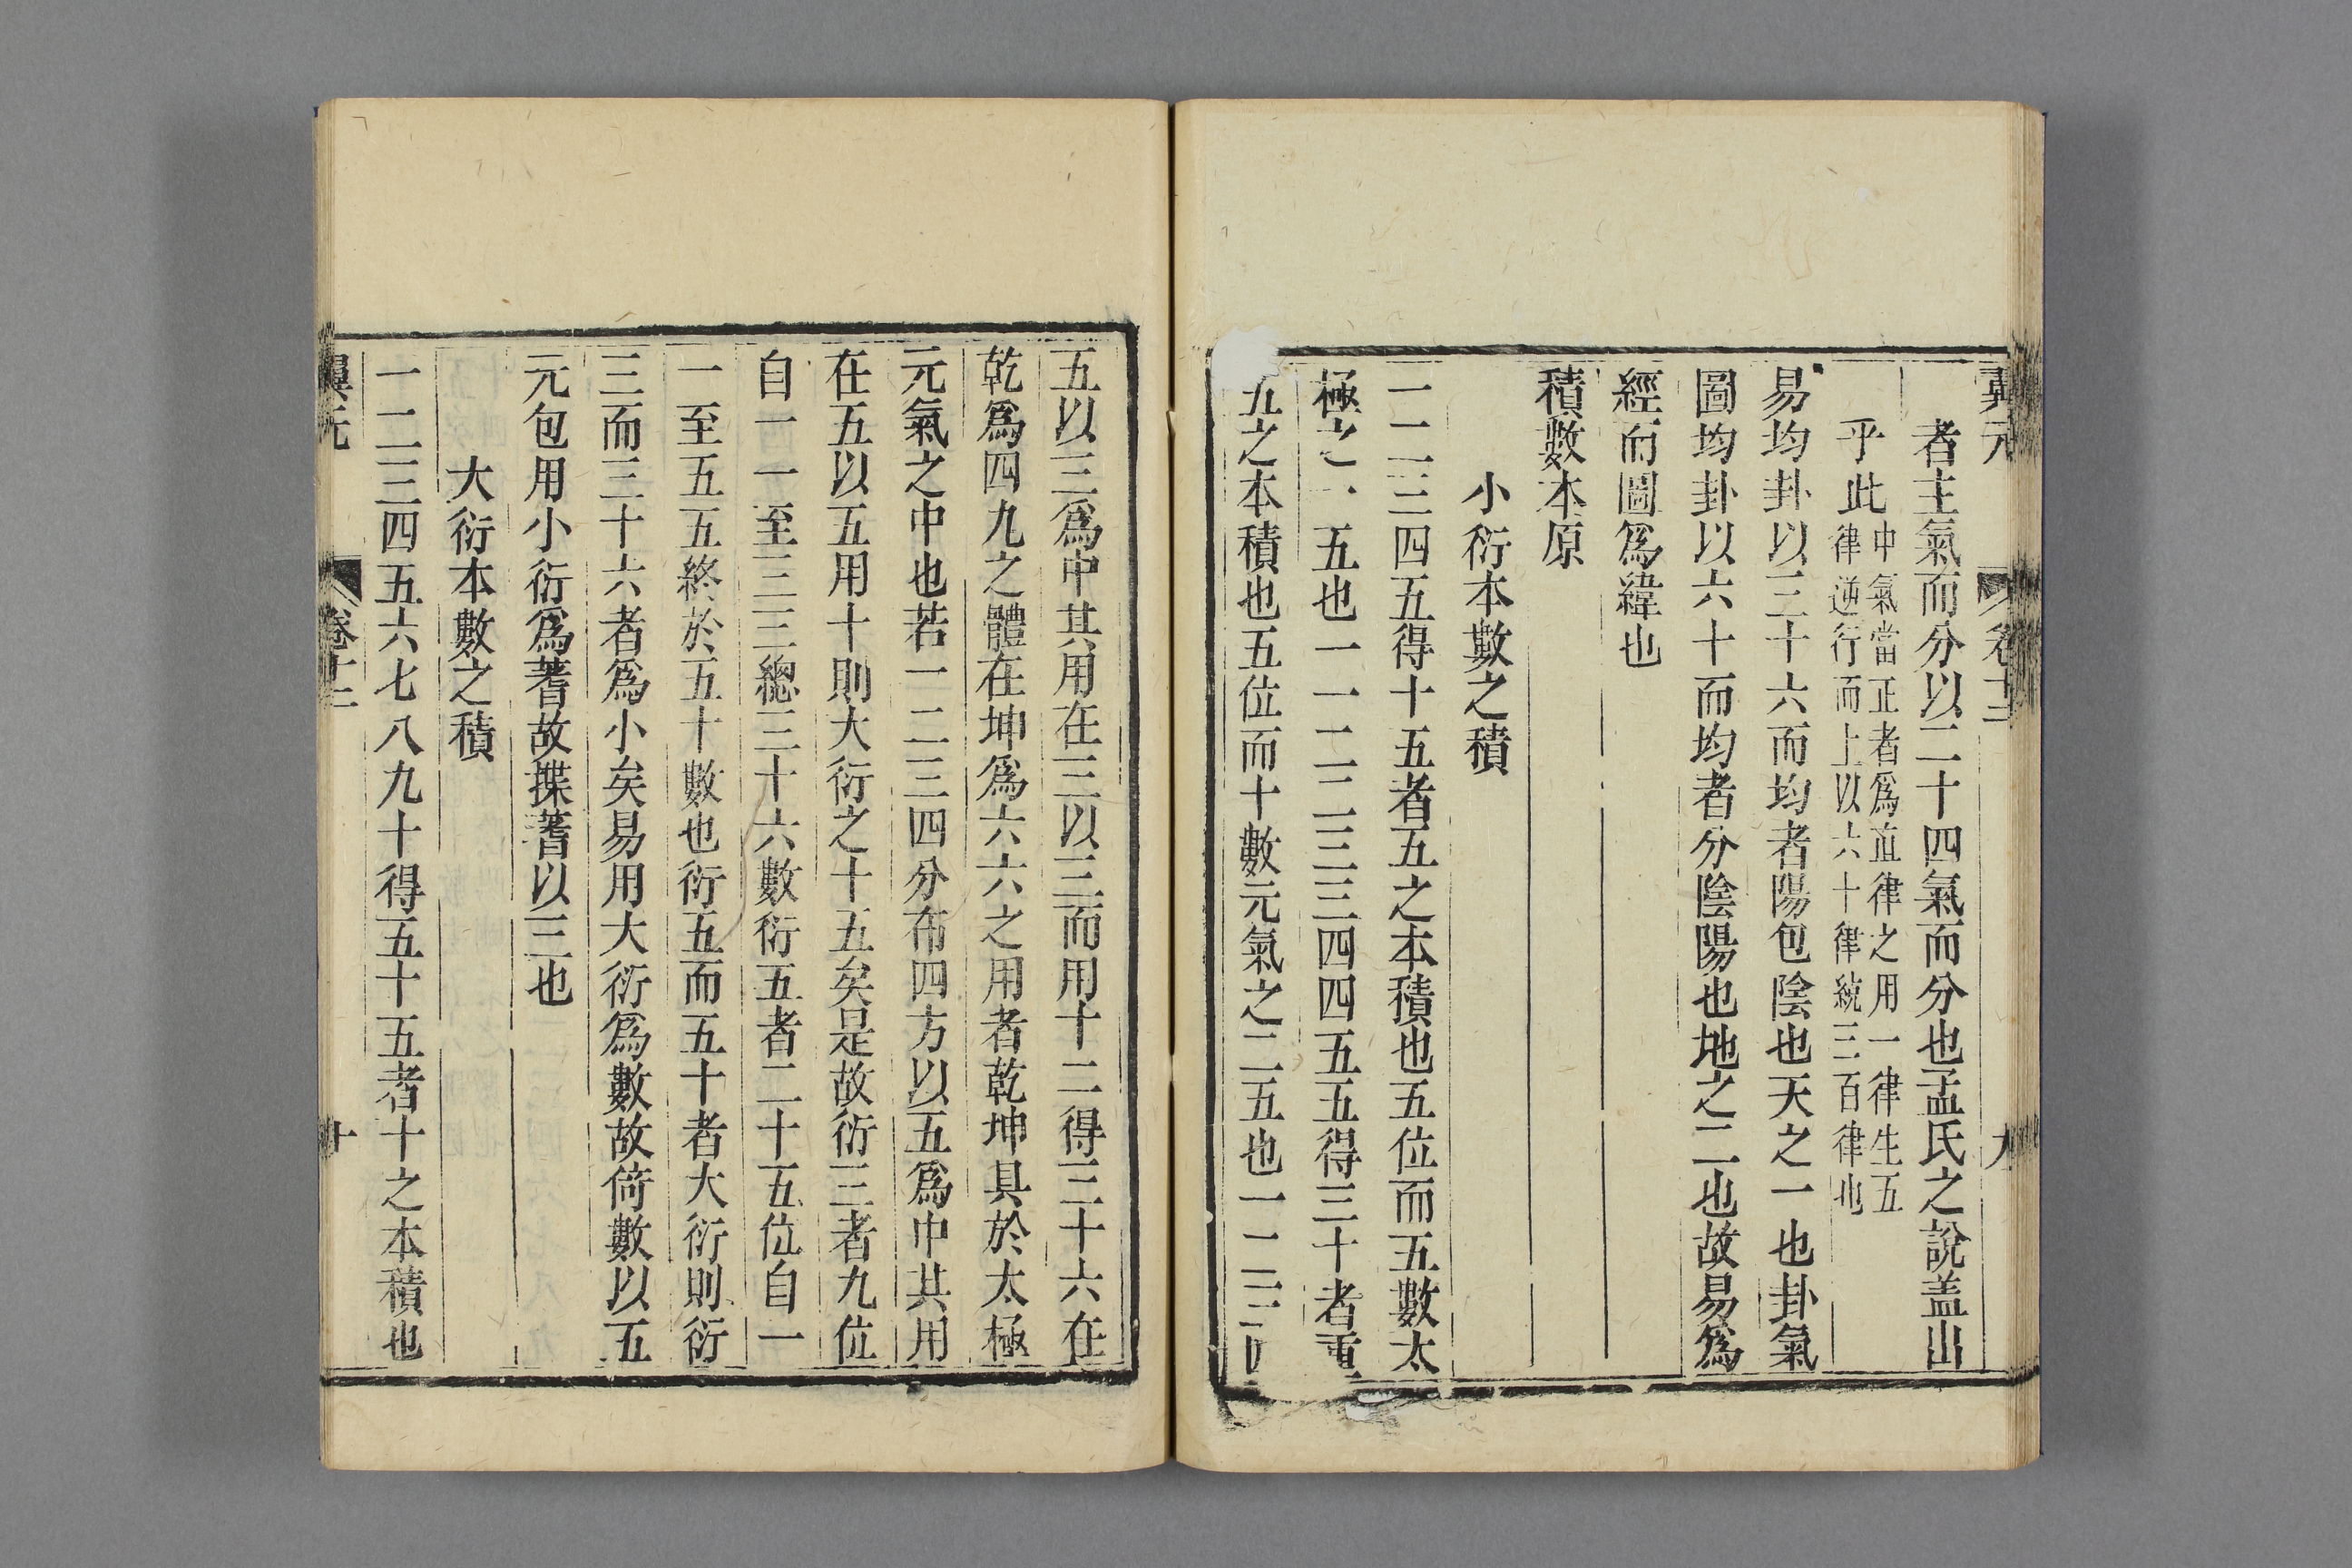 翼元　卷十二　九
者主氣而分以二十四氣而分也孟氏之說盖出
乎此中氣當正者爲直律之用一律生五
律逆行而上以六十律統三百律也
易均卦以三十六而均者陽包陰也天之一也卦氣
圖均卦以六十而均者分陰陽也地之二也故易爲
經而圖爲緯也
積數本原
小衍本數之積
一二三四五得十五者五之本積也五位而五數太
極之一五也一一二二三三四四五五得三十者重
五之本積也五位而十數元氣之二五也一二三四
五以三爲中其用在三以三而用十二得三十六在
乾爲四九之體在坤爲六六之用者乾坤具於太極
元氣之中也若一二三四分布四方以五爲中其用
在五以五用十則大衍之十五矣是故衍三者九位
自一一至三三總三十六數衍五者二十五位自一
一至五五終於五十數也衍五而五十者大衍則衍
三而三十六者爲小矣易用大衍爲數故倚數以五
元包用小衍爲蓍故揲蓍以三也
大衍本數之積
一二三四五六七八九十得五十五者十之本積也
翼元　卷十二　十